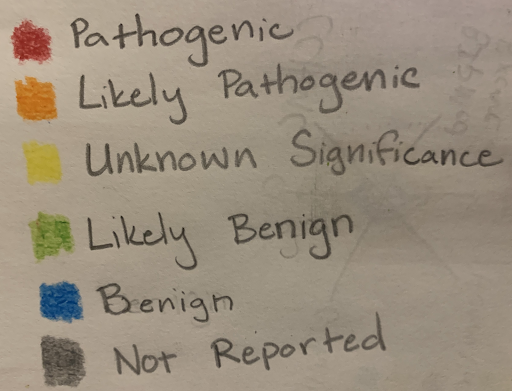 Pathogenic
Likely Pathogenic
Unknown Significance
Likely Benign
Benign
Not Reported